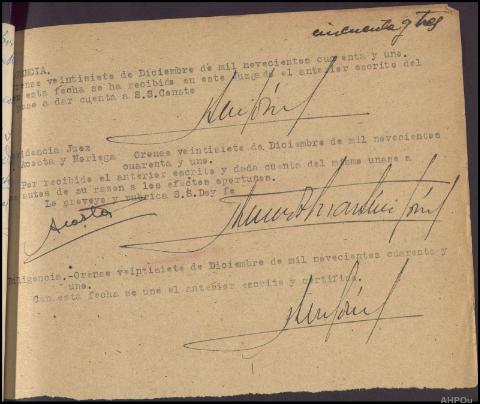 cincuenta y tres
Orense veintisiete de Diciembre de mil novecientos cuarenta y uno.
esta fecha se ha recibido en este Juzgado el anterior escrito del
a dar cuenta a S.S. Conste
videncia Juez
Acosta y Noriega Orense veintisiete de Diciembre de mil novecientos
cuarenta y uno.
Por recibido el anterior escrito y dada cuenta del mismo unase a
de su razon a los efectos oportunos.
Lo proveyo y rubrica S.S. Doy fe
Acosta
Diligencia.-Orense veintisiete de Diciembre de mil novecientos cuarenta y
uno.
Con esta fecha se une el anterior escrito y certifico.
AHPOu